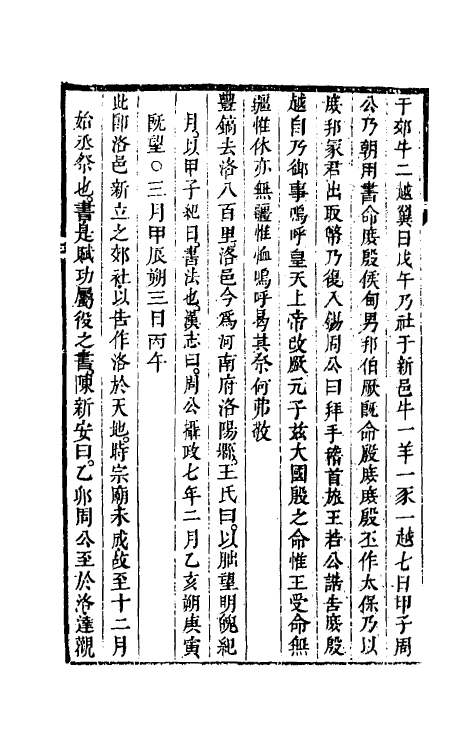 于郊牛二越翼日戊午乃社于新邑牛一羊一豕一越七日甲子周
公乃朝用書命庶殷侯甸男邦伯厥旣命殷庶庶殷丕作太保乃以
庶邦冢君出取幣乃復入錫周公曰拜手稽首旅王若公誥告庶殷
越自乃御事嗚呼皇天上帝改厥元子茲大國殷之命惟王受命無
疆惟休亦無疆惟恤嗚呼曷其柰何弗敬
豐鎬去洛八百里洛邑今爲河南府洛陽縣王氏曰以朏望明魄紀
月以甲子紀日書法也漢志曰周公攝政七年二月乙亥朔庚寅
旣望○三月甲辰朔三日丙午
此卽洛邑新立之郊社以告作洛於天地時宗廟未成故至十二月
始烝祭也書是賦功屬役之書陳新安曰乙卯周公至於洛達觀